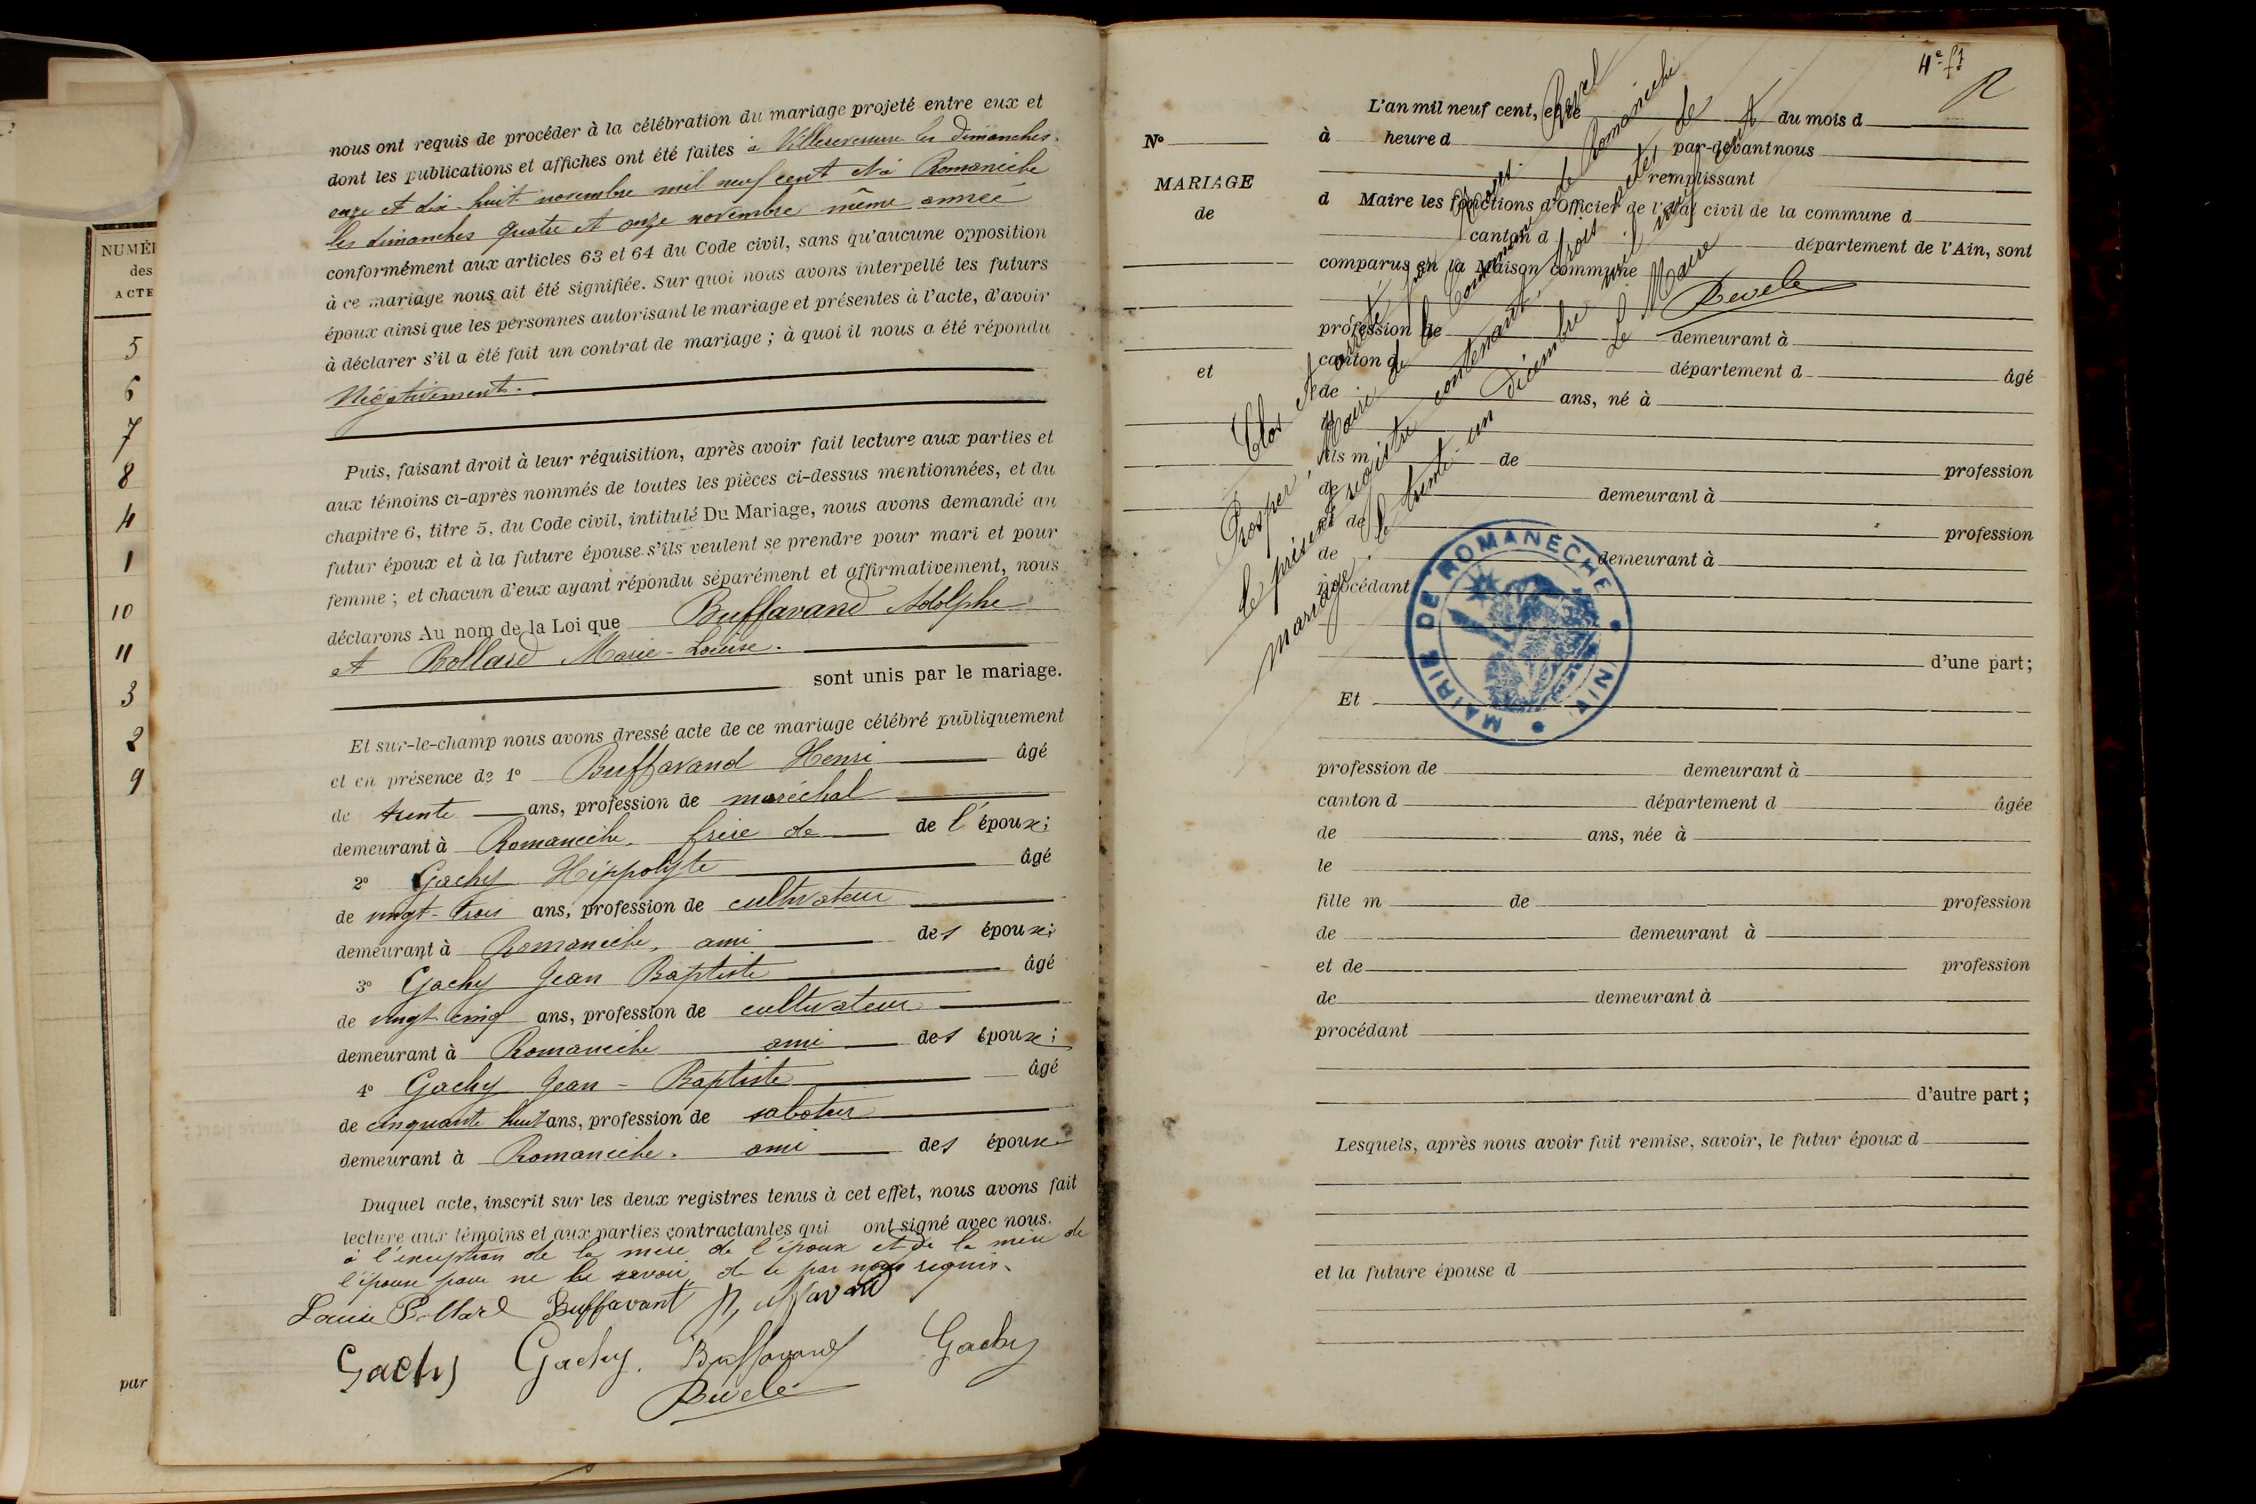 NUMÉ
des
ACTE
5
6
7
8
4
1
10
11
3
2
9
par
nous ont requis de procéder à la célébration du mariage projeté entre eux et
dont les publications et affiches ont été faites à Villereversure les dimanches
onze et dix-huit novembre mil neuf cent et à Romanèche
les dimanches quatre et onze novembre même année
conformément aux articles 63 et 64 du Code civil, sans qu'aucune opposition
à ce mariage nous ait été signifiée. Sur quoi nous avons interpellé les futurs
époux ainsi que les personnes autorisant le mariage et présentes à l'acte, d'avoir
à déclarer s'il a été fait un contrat de mariage ; à quoi il nous a été répondu
Négativement.
Puis, faisant droit à leur réquisition, après avoir fait lecture aux parties et
aux témoins ci-après nommés de toutes les pièces ci-dessus mentionnées, et du
chapitre 6, titre 5, du Code civil, intitulé Du Mariage, nous avons demandé au
futur époux et à la future épouse s'ils veulent se prendre pour mari et pour
femme ; et chacun d'eux ayant répondu séparément et affirmativement, nous
déclarons Au nom de la Loi que Buffavand Adolphe
et Bollard Marie-Louise.
sont unis par le mariage.
Et sur-le-champ nous avons dressé acte de ce mariage célébré publiquement
et en présence de 1º Buffavand Henri âgé
de trente ans, profession de maréchal
demeurant à Romanèche, frère de de l'époux;
2º Gachy Hippolyte âgé
de vingt-trois ans, profession de cultivateur
demeurant à Romanèche, ami des époux;
3º Gachy Jean Baptiste âgé
de vingt cinq ans, profession de cultivateur
demeurant à Romanèche ami des époux;
4º Gachy Jean-Baptiste âgé
de cinquante huit ans, profession de sabotier
demeurant à Romanèche. ami des époux
Duquel acte, inscrit sur les deux registres tenus à cet effet, nous avons fait
lecture aux témoins et aux parties contractantes qui ont signé avec nous.
à l'exception de la mère de l'époux et de la mère de
l'épouse pour ne le savoir, de ce par nous requis.
Louise Bollard Buffavant Buffavand
Gachy Gachy. Buffavand Gachy
Revele
4e ft
R
L'an mil neuf cent, et le du mois d
à heure d par-devant nous
remplissant
d Maire les fonctions d'Officier de l'état civil de la commune d
canton d département de l'Ain, sont
comparus en la Maison commune
profession de demeurant à
canton d département d âgé
de ans, né à
le
fils m de profession
de demeurant à
et de profession
de demeurant à
procédant
d'une part ;
Et
profession de demeurant à
canton d département d âgée
de ans, née à
le
fille m de profession
de demeurant à
et de profession
de demeurant à
procédant
d'autre part ;
Lesquels, après nous avoir fait remise, savoir, le futur époux d
et la future épouse d
Nº
MARIAGE
de
et
Clos et arrêté par Nous
Prosper, Maire de la Commune de Romanèche
le présent registre contenant trois actes de
mariage, le trente-un décembre mil neuf cent
Le Maire
Revele
MAIRIE DE ROMANÈCHE
AIN